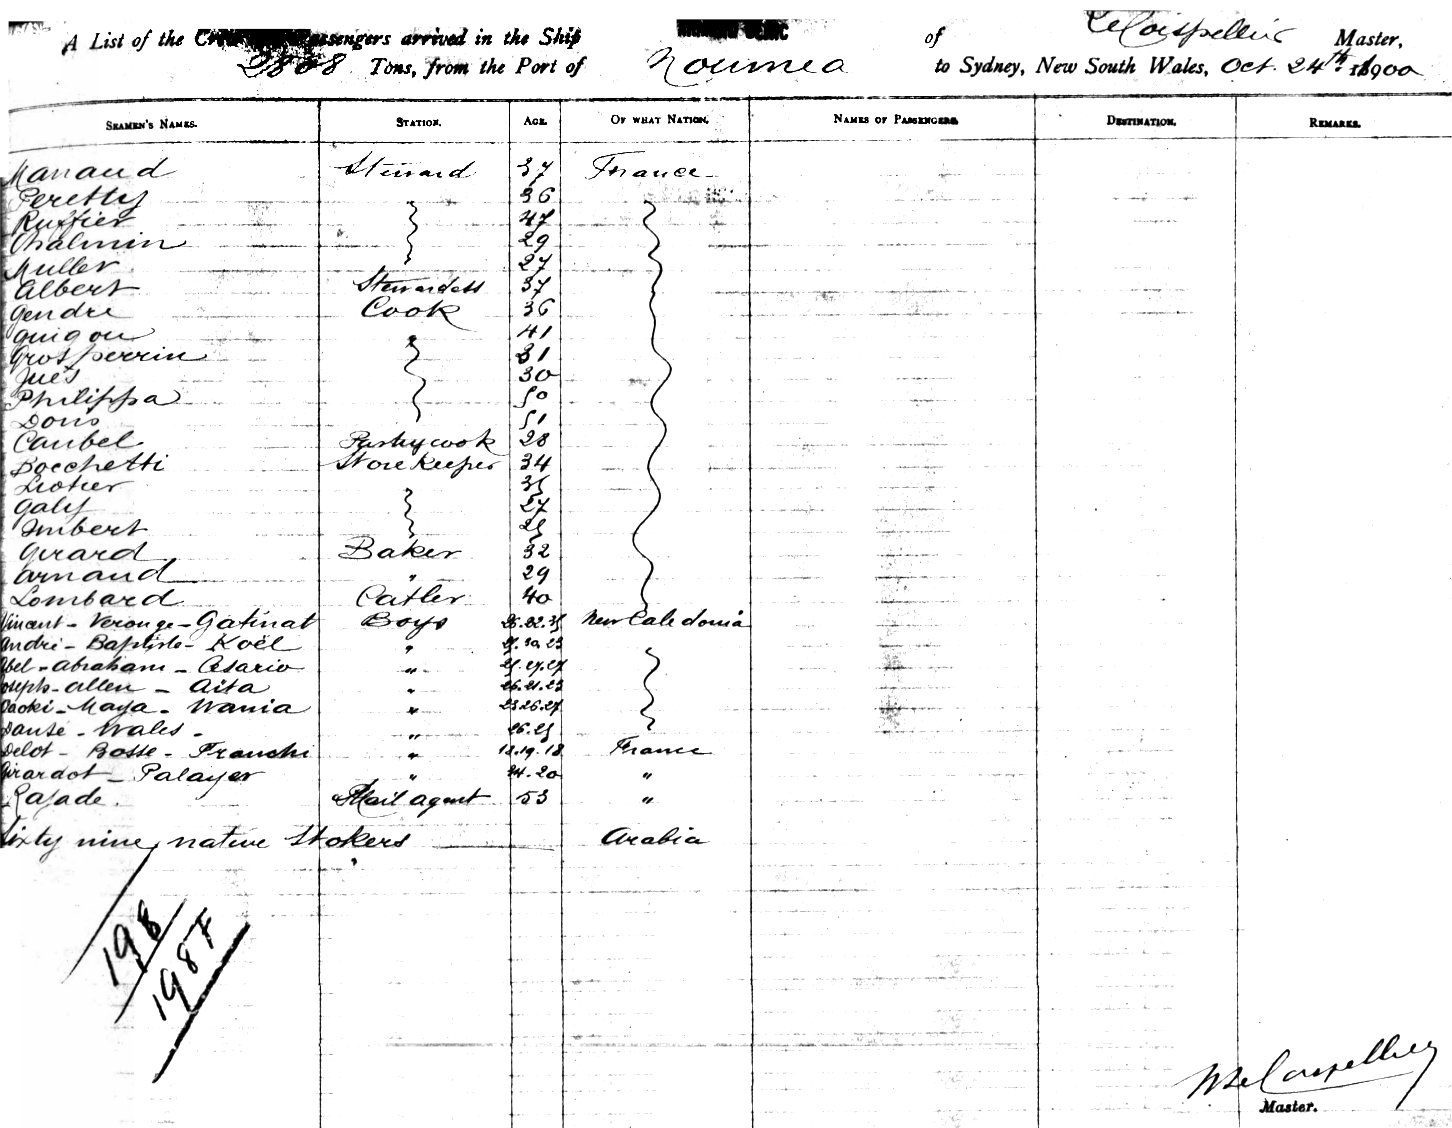 A List of the Crew and Passengers arrived in the Ship of Master,
2808 Tons, from the Port of Noumea to Sydney, New South Wales, Oct. 24th. 1900
SEAMEN'S NAMES. STATION. AGE. OF WHAT NATION. NAMES OF PASSENGERS. DESTINATION. REMARKS.
Manaud Steward 37 France
Peretty 36
Ruffier 47
Chalmin 29
Muller 27
Albert Stewardess 37
Gendre Cook 36
Guigou 41
Grosperrin 31
30
Philippa 50
51
Caubel Pastrycook 28
Bocchetti Storekeeper 34
35
Galy 27
Imbert 25
Girard Baker 32
Arnaud " 29
Lombard Catler 40
Vincent - Veronge - Gatinat Boys New Caledonia
André - Baptiste - Koël "
Abel - Abraham - Asario "
Joseph - Allen - Aita " 26.21.23
Daoki - Maya - Wania " 23.26.27
Danse - Wales - " 26.25
Delot - Bosse - Franchi " 18.19.18 France
Girardot - Palayer " 24.20 "
Lajade. Mail agent 53 "
Sixty nine native stokers Arabia
198
1987
Master.